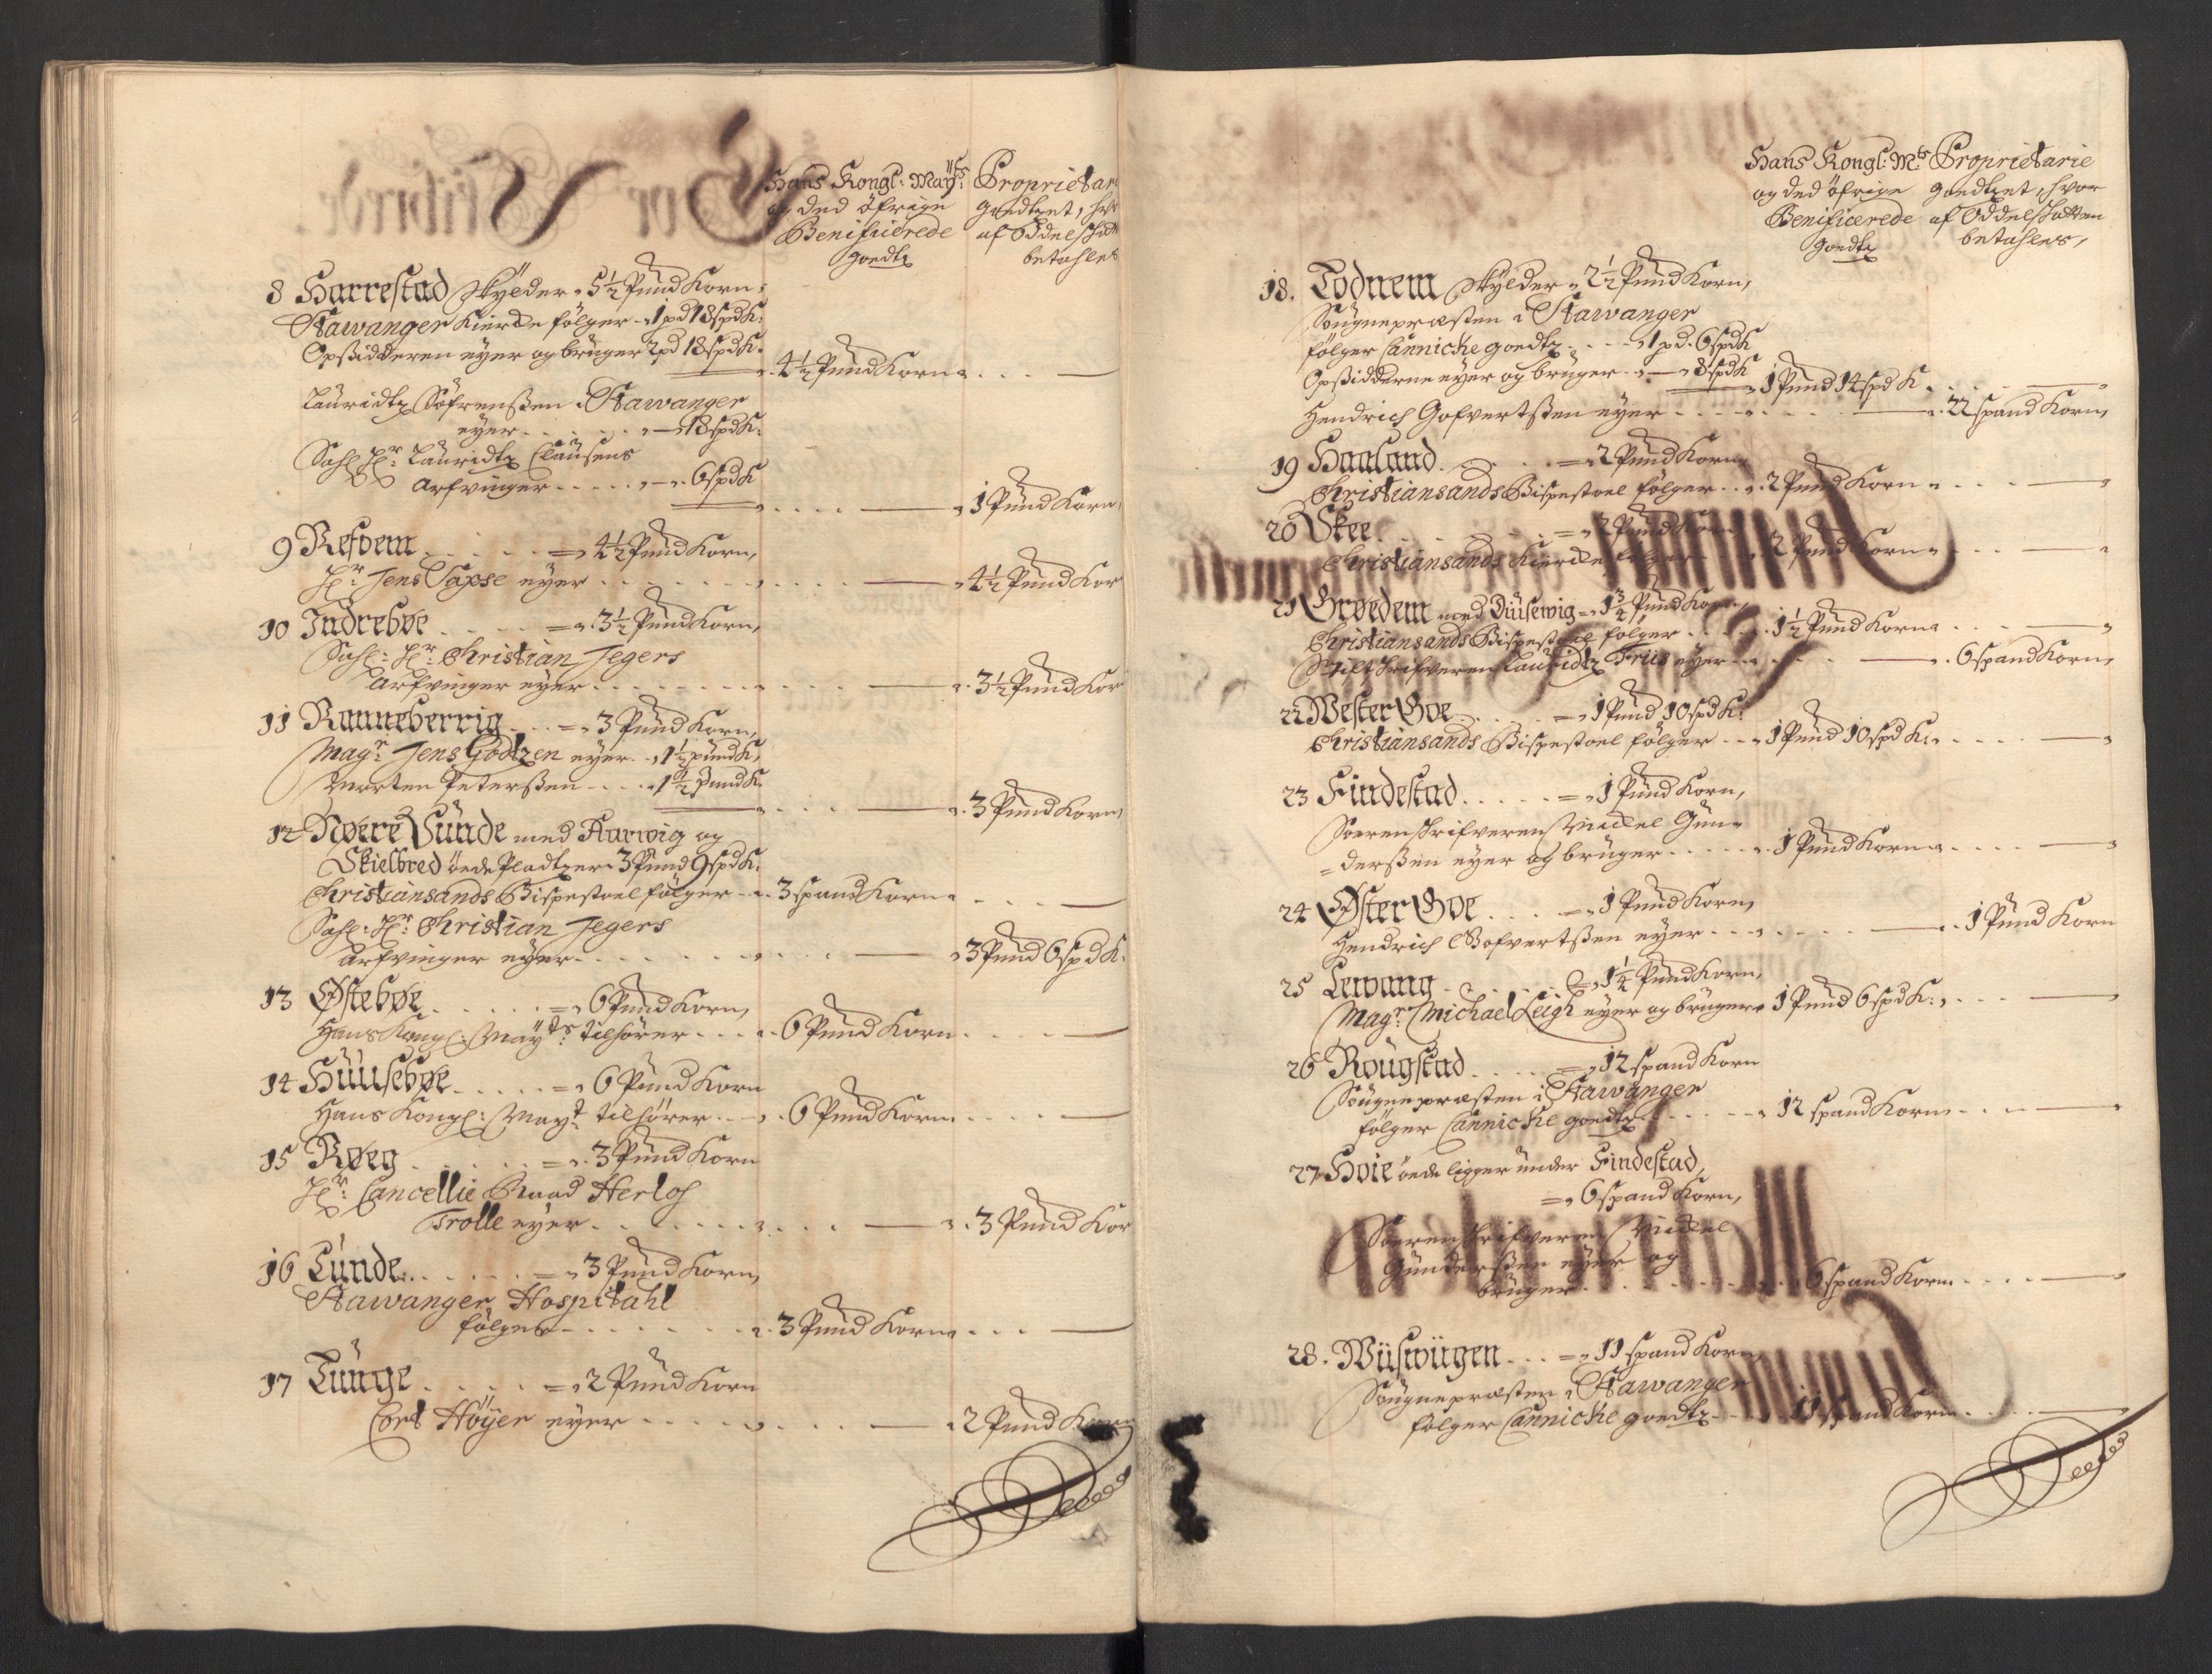 Hans Kongl: Mayts: Proprietari
og ded öfrige goedtzet, hvor
Benificerede af Oddelschatt
goedtz betahles
8 Harrestad skylder 5½ Pund Korn:
Stawanger Kiercke følger 1 pd 18 spd K:
Opsidderen eyer og bruger 2 pd 18 spd K: 4½ Pund Korn
Lauridtz Söfrenssen i Stawanger
eyer 18 spd K:
Sahl: Hr: Lauridtz Clausens
Arfvinger 6 spd K
1 Pund Korn,
9 Refvem 4½ Pund Korn,
Hr: Jens Saxse eyer 4½ Pund Kor
10 Indrebøe 3½ Pund Korn,
Sahl: Hr: Christian Jegers
Arfvinger eyer 3½ Pund Kor
11 Ranneberrig 3 Pund Korn,
Magr: Jens Godtzen eyer 1½ pund K,
Morten Peterssen 1½ Pund K
3 Pund Korn,
12 Nøere Sunde med Aarwig og
Skielbred öede Pladtzer 3 Pund 9 spd K:
Christiansands Bispestoel følger 3 spand Korn
Sahl: Hr: Christian Jegers
Arfvinger eyer 3 Pund 6 spd K:
13 Østebøe 6 Pund Korn,
Hans Kongl: Mayts: tilhører 6 Pund Korn
14 Huusebøe 6 Pund Korn
Hans Kongl: Mayt: tilhører 6 Pund Korn
15 Røeg 3 Pund Korn
Hr: Cancellie Raad Herlof
Trolle eyer 3 Pund Kor
16 Lunde 3 Pund Korn,
Stawanger Hospitahl
følger 3 Pund Korn
17 Tunge 2 Pund Korn
Cort Höyer eyer 2 Pund Korn
Hans Kongl: Mts Proprietarie
og ded öfrige goedtzet, hvor
Benificerede af Oddelschatten
goedtz betahles,
18. Todnem skylder 2½ Pund Korn,
Sougnepræsten i Stawanger
følger Cannicke goedtz 1 pd. 6 spd K
Opsidderne eyer og bruger 8 spd K 1 Pund 14 spd K
Hendrich Gofvertssen eyer 22 spand Korn,
19 Haaland 2 Pund Korn
Christiansands Bispestoel følger 2 Pund Korn
20 Skee 2 Pund Korn
Christiansands Kiercke følger 2 Pund Korn
21 Grøedem med Duusewig 1¾ Pund Korn,
Christiansands Bispestoel følger 1½ Pund Korn
Stiftskrifveren Lauridtz Friis eyer 6 spand Korn,
22 Wester Goe 1 Pund 10 spd K:
Christiansands Bispestoel følger 1 Pund 10 spd K:
23 Findestad 1 Pund Korn,
Soerenskrifveren Michel Gun-
derssen eyer og bruger 1 Pund Korn
24 Øster Goe 1 Pund Korn,
Hendrich Gofvertssen eyer 1 Pund Korn
25 Lewang 1¼ Pund Korn,
Magr: Michael Leigh eyer og bruger 1 Pund 6 spd K:
26 Rougstad 12 spand Korn
Sougnepræsten i Stawanger
følger Cannicke goedtz 12 spand Korn
27 Hoie öede ligger under Findestad,
6 spand Korn,
Soerenskrifveren Michel
Gunderssen eyer og
bruger 6 spand Korn
28. Wüswügen 11 spand Korn,
Sougnepræsten i Stawanger
følger Cannicke goedtz 11 spand Korn